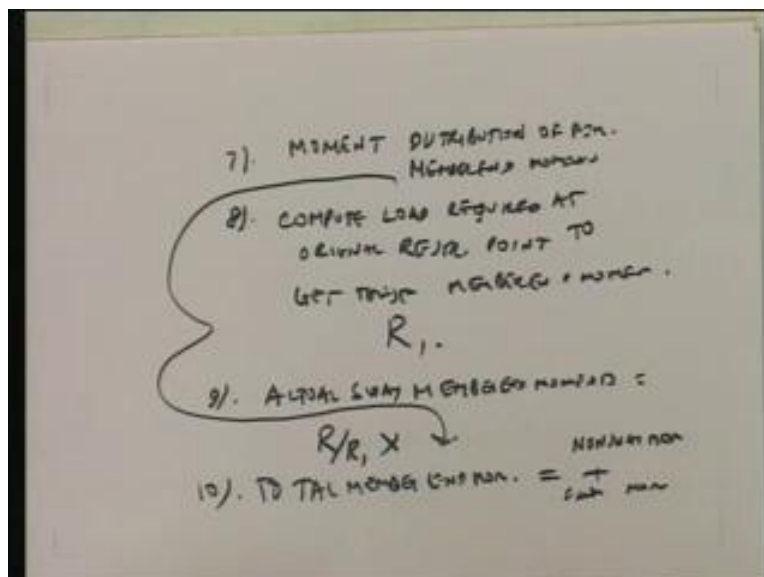 7). MOMENT DISTRIBUTION OF
MEMBER END MOMENTS
8). COMPUTE LOAD REQUIRED AT
ORIGINAL RESTR. POINT TO
GET THESE MEMBER END MOMEN.
R₁.
9). ACTUAL SWAY MEMBER END MOMENTS =
R/R₁ X
10). TO TAL MEMBER END MOM. = NONSWAY MOM
+
SWAY MOM